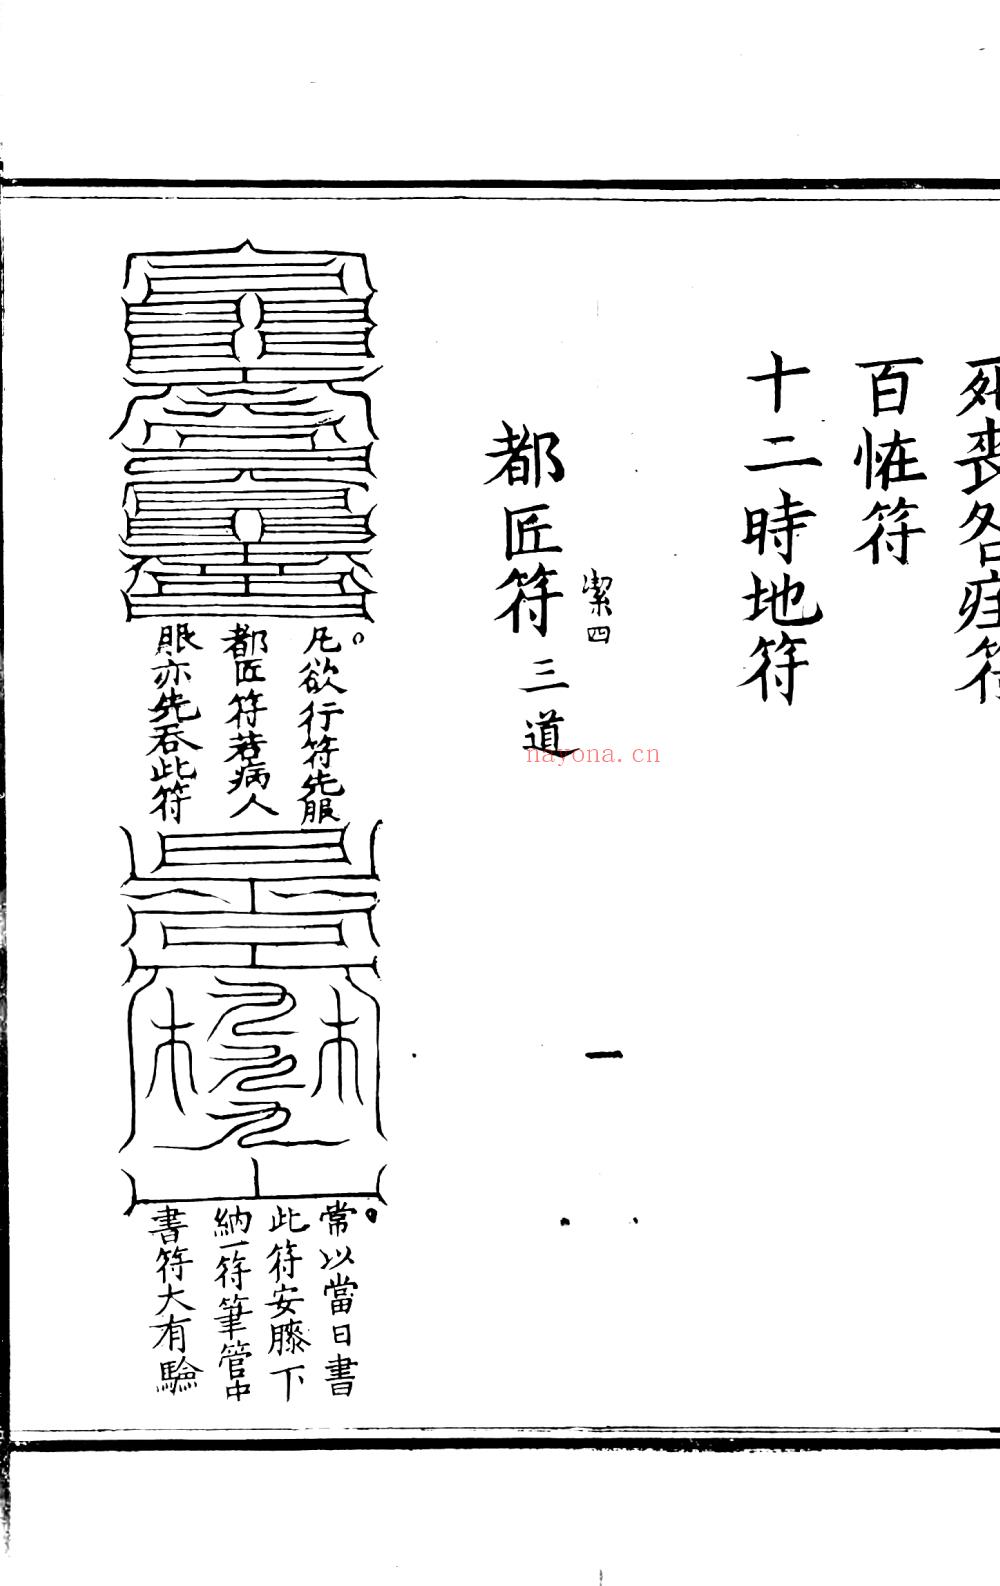 死喪各症符
百恠符
十二時地符
潔四
都匠符三道
nayona.cn
凡欲行符先服
都匠符若病人
眼亦先吞此符
常以當日書
此符安膝下
納一符筆管中
書符大有驗